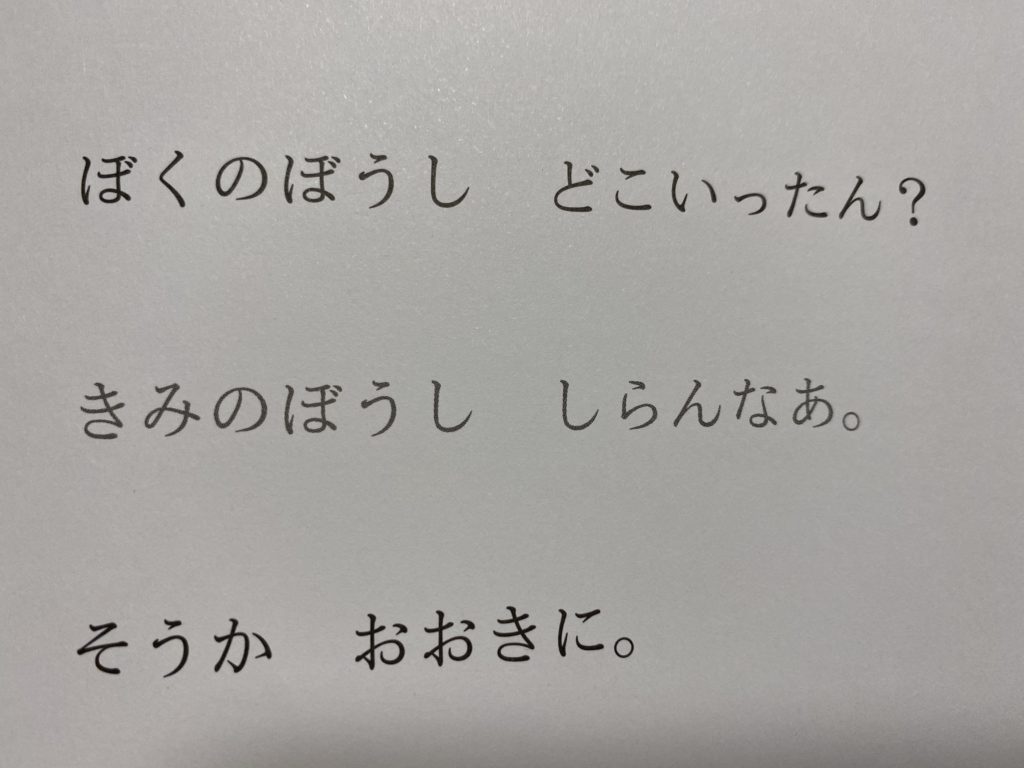 ぼくのぼうし　どこいったん？
きみのぼうし　しらんなあ。
そうか　おおきに。